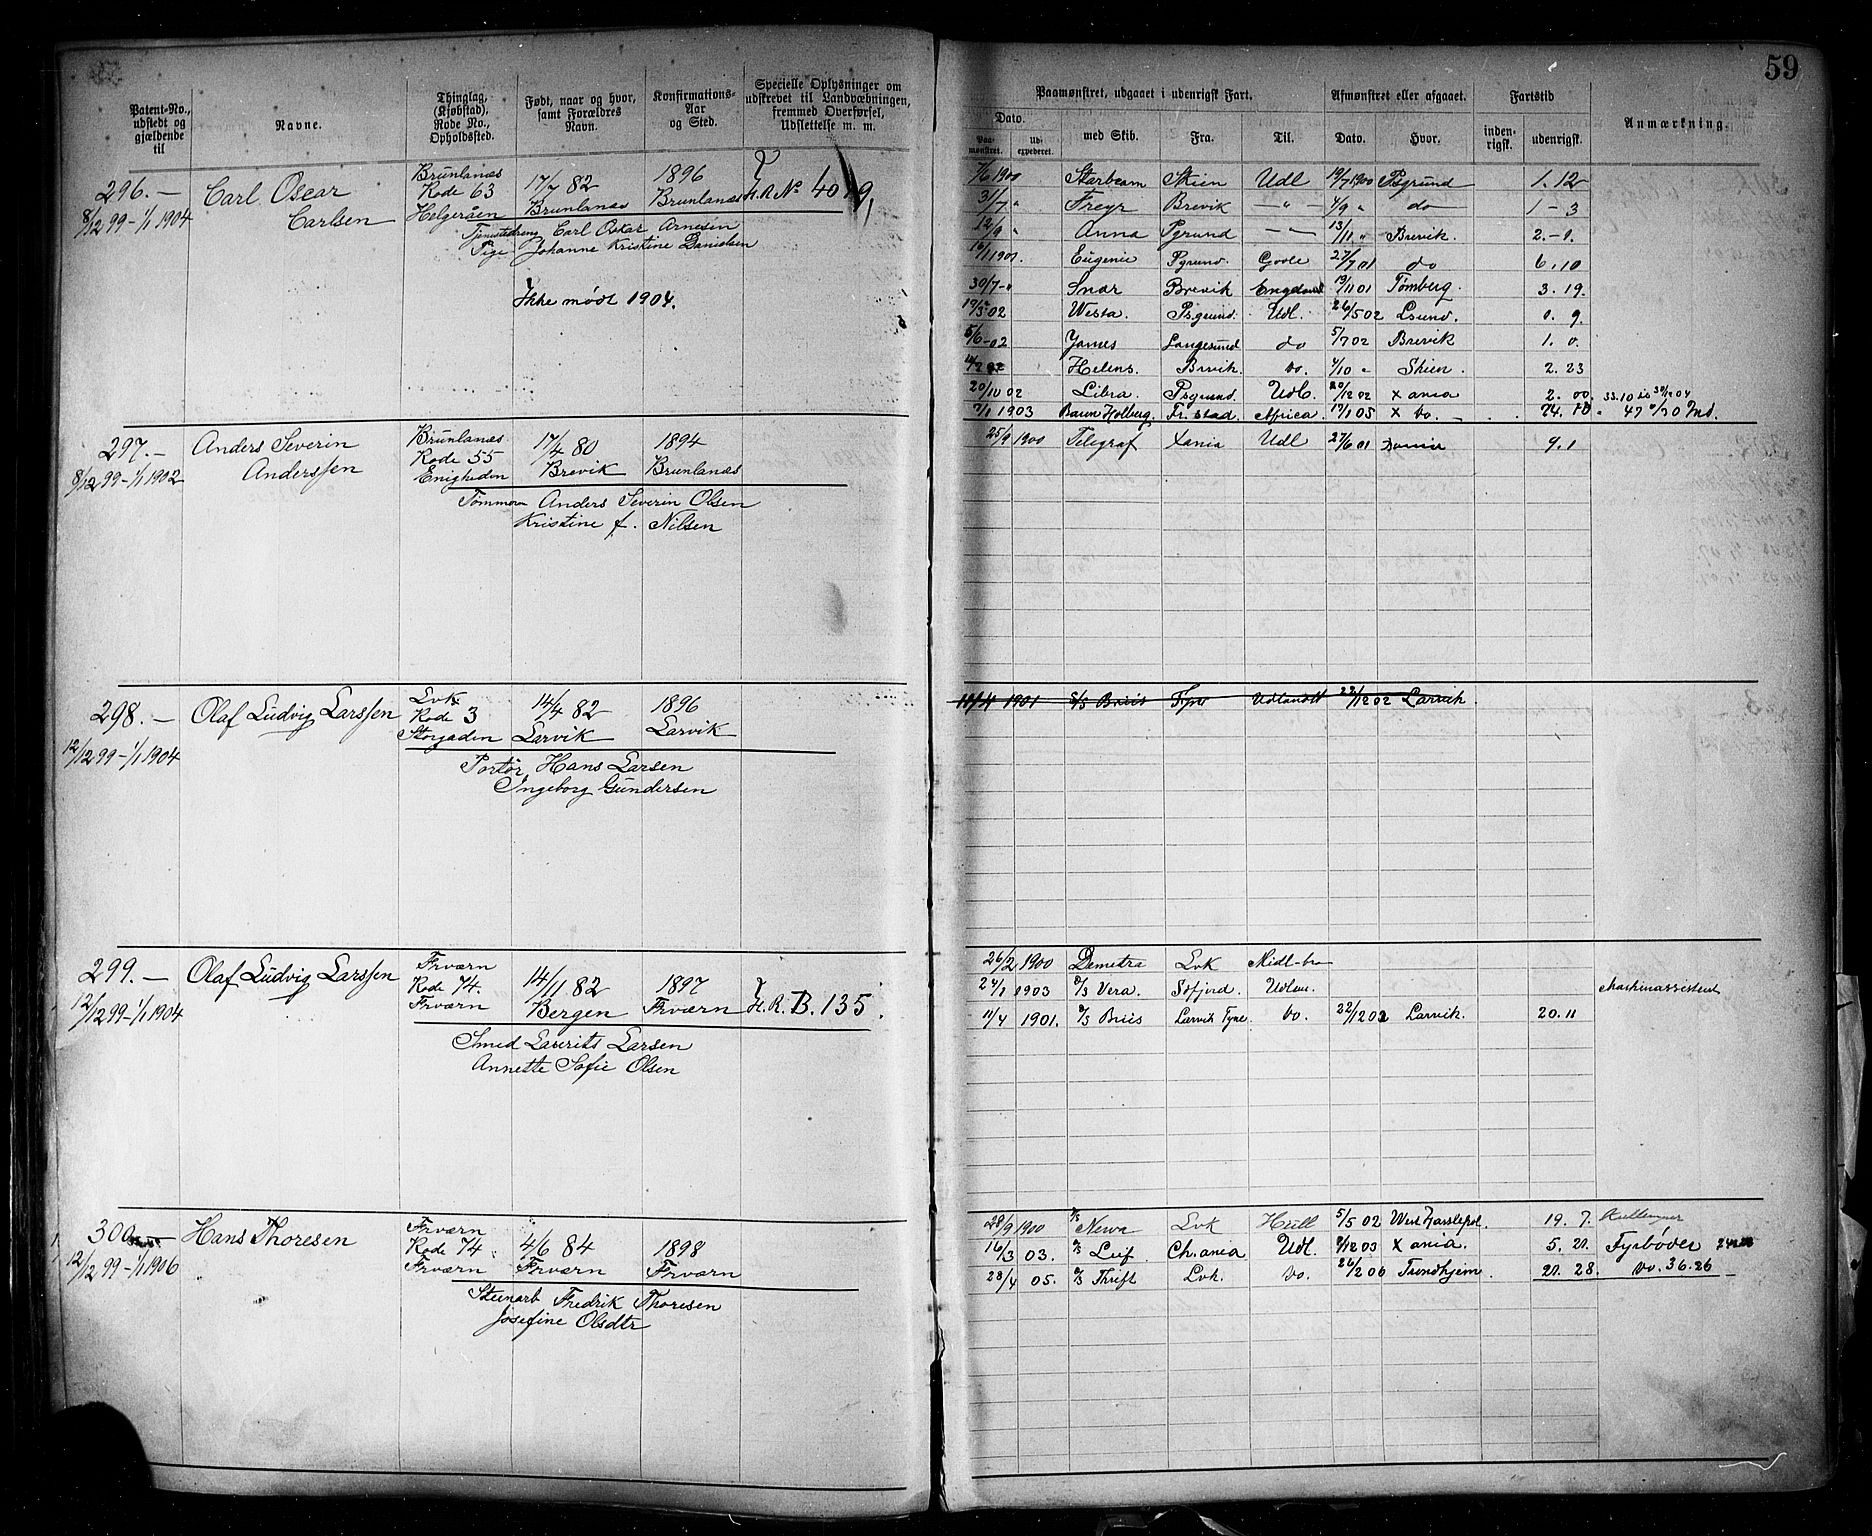 59
Patent-No., udstedt og gjældende til
Navne.
Thinglag, (Kjøbstad), Rode No., Opholdssted.
Født, naar og hvor, samt Forældres Navn.
Konfirmations-Aar og Sted.
Specielle Oplysninger om udskrevet til Landværnningen, fremmed Overførsel, Udslettelse m. m.
Paamønstret, udgaaet i udenrigsk Fart.
Afmønstret eller afgaaet.
Fartstid
Anmærkning.
Dato.
Paa-mønstret.
Ud-expederet.
med Skib.
Fra.
Til.
Dato.
Hvor.
inden-rigsk.
udenrigsk.
296.— Carl Oscar Carlsen
8/12 99 – 1/1 1904
Brunlanæs Rode 63 Helgeråen
17/7 82 Brunlanæs
1896 Brunlanæs
H. R. No 4019,
Tjenestedreng Carl Oskar Arnesen
Pige Johanne Kristine Danielsen
Ikke mødt 1904.
7/6 1900 Starbeam Skien Udl 19/7 1900 Psgrund 1. 12
3/7 " Freyr Brevik — " — 4/9 " do 1 – 3
12/9 " Anna Pgrund — " — 13/11 " Brevik. 2. – 1.
16/1 1901. Eugenie Pgrund. Goole 27/7 01 do 6. 10
30/7 – " Snar Brevik England 19/11 01 Tømberg. 3. 19.
19/3 02 Westa. Psgrund. Udl. 26/5 02 Lsund. 0. 9.
5/6 – 02 James Langesund do 5/7 02 Brevik 1. 0.
Helens. Brvik. do. 4/10 " Skien. 2. 23
20/10 02 Libra. Psgrund. Udl. 20/12 02 Xania 2. 00. 33.10
7/1 1903 Baun Holberg. Fr.stad. Africa. 17/1 05 X do.
297.— Anders Severin Anderssen
8/12 99 – 1/1 1902
Brunlanæs Rode 55 Enigheden
17/4 80 Brevik
1894 Brunlanæs
Tømmerm Anders Severin Olsen
Kristine f. Nilsen
25/9 1900 Telegraf Xania Udl 27/6 01 Xania 9. 1
298.— Olaf Ludvig Larssen
12/12 99 – 1/1 1904
Lvk Rode 3 Storgaden
14/4 82 Larvik
1896 Larvik
Portør Hans Larsen
Ingeborg Gundersen
11/4 1901 S/S Briis Tyne Udlandet 22/12 02 Larvik.
299.— Olaf Ludvig Larssen
12/12 99 – 1/1 1904
Frværn Rode 74. Frværn
14/11 82 Bergen
1897 Frværn
H. R. B. 135.
Smed Laurits Larsen
Annette Sofie Olsen
26/2 1900 Demetra Lvk Midl-bro
24/1 1903 S/S Vera. Søfjord. Udlan. Maskinassistent
11/4 1901. S/S Briis Larvik Tyne do. 22/12 02 Larvik. 20. 11
300 — Hans Thoresen
12/12 99 – 1/1 1906
Frværn Rode 74. Frværn
4/6 84 Frværn
1898 Frværn
Stenarb Fredrik Thoresen
Josefine Olsdtr
28/9 1900 S/S Newa Lvk Hull 5/5 02 West Harslepol. 19. 7. Kullemper
16/3 03. S/S Leif Ch.ania Udl. 9/12 03 Xania. 5. 21. Fyrbøder
28/4 05. S/S Thrift Lvk. do. 26/2 06 Trondhjem. 21. 28. do. 36.26